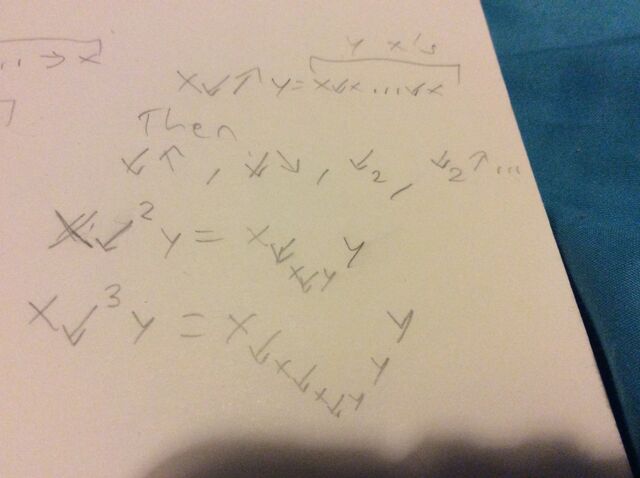 ... → x
y x's
x↙↑y = x↙x...↙x
Then
↙↑, ↙↘, ↙₂, ↙₂↑...
x↙²y = x↙ₓ↙ᵧ y
x↙³y = x↙ₓ↙ₓ↙ᵧ y y